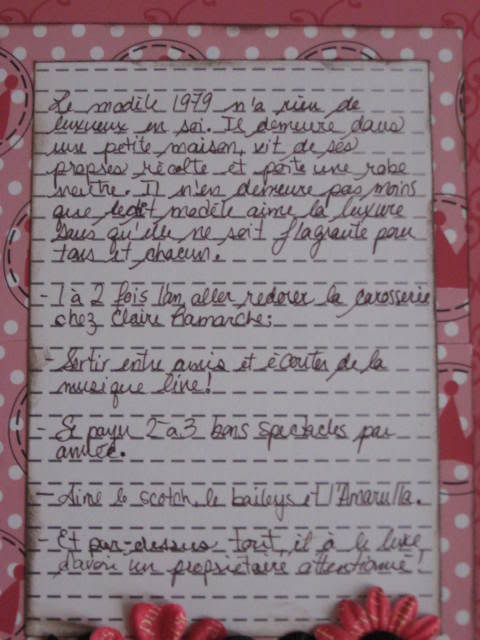 Le modèle 1979 n'a rien de
luxueux en soi. Il demeure dans
une petite maison, vit de ses
propres récolte et porte une robe
neutre. Il n'en demeure pas moins
que ledit modèle aime la luxure
sans qu'elle ne soit flagrante pour
tous et chacun.
- 1 à 2 fois l'an, aller redorer la carosserie
chez Claire Lamarche;
- Sortir entre amis et écouter de la
musique live!
- Se payer 2 à 3 bons spectacles par
année.
- Aime le scotch, le baileys et l'Amarulla.
- Et par-dessus tout, il à le luxe
d'avoir un propriétaire attentionné!